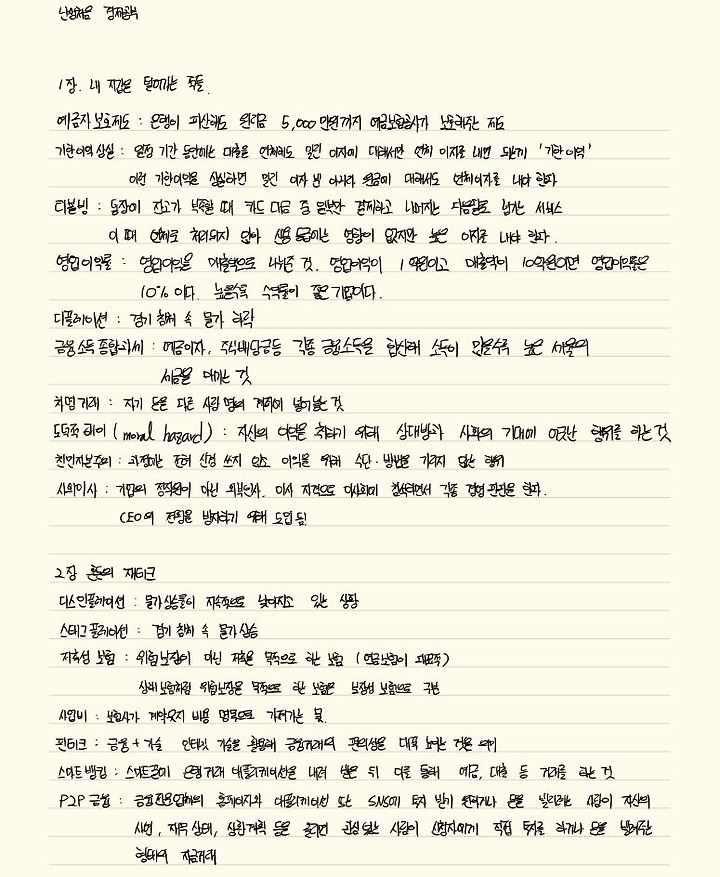 난생처음 경제공부
1장. 내 지갑을 털어가는 적들.
예금자보호제도 : 은행이 파산해도 원리금 5,000만원까지 예금보험공사가 보호해주는 제도
기한이익상실 : 일정 기간 동안에는 대출을 연체해도 밀린 이자에 대해서만 연체 이자를 내면 되는게 '기한이익'
이런 기한이익을 상실하면 밀린 이자 뿐 아니라 원금에 대해서도 연체이자를 내야 한다
리볼빙 : 통장이 잔고가 부족할 때 카드 대금 중 일부만 결제하고 나머지는 다음달로 넘기는 서비스
이 때 연체로 처리되지 않아 신용등급에는 영향이 없지만 높은 이자를 내야 한다.
영업이익률 : 영업이익을 매출액으로 나눈 것. 영업이익이 1억원이고 매출액이 10억원이면 영업이익률은
10%이다. 높을수록 수익률이 좋은 기업이다.
디플레이션 : 경기 침체 속 물가 하락
금융소득 종합과세 : 예금이자, 주식배당금등 각종 금융소득을 합산해 소득이 많을수록 높은 세율의
세금을 매기는 것
차명거래 : 자기 돈을 다른 사람 명의 계좌에 넣어놓는 것
도덕적 해이(moral hazard) : 자신의 이익을 취하기 위해 상대방과 사회의 기대에 어긋난 행위를 하는 것
천민자본주의 : 과정에는 전혀 신경 쓰지 않고 이익을 위해 수단·방법을 가리지 않는 행위
사외이사 : 기업의 정직원이 아닌 외부인사. 이사 자격으로 이사회에 참석하면서 각종 경영 판단을 한다.
CEO의 전횡을 방지하기 위해 도입됨
2장 혼돈의 재테크
디스인플레이션 : 물가상승률이 지속적으로 낮아지고 있는 상황
스태그플레이션 : 경기 침체 속 물가상승
저축성 보험 : 위험보장이 아닌 저축을 목적으로 한 보험 (연금보험이 대표적)
상해보험처럼 위험보장을 목적으로 한 보험은 보장성 보험으로 구분
사업비 : 보험사가 계약유지 비용 명목으로 가져가는 몫
핀테크 : 금융+기술 인터넷 기술을 활용해 금융거래의 편의성을 대폭 높이는 것을 의미
스마트뱅킹 : 스마트폰에 은행거래 애플리케이션을 내려 받은 뒤 이를 통해 예금, 대출 등 거래를 하는 것
P2P금융 : 금융전문업체의 홈페이지와 애플리케이션 또는 SNS에 투자 받기 원하거나 돈을 빌리려는 사람이 자신의
사연, 재무상태, 상환계획 등을 올리면 관심있는 사람이 신청자에게 직접 투자를 하거나 돈을 빌려주는
형태의 자금거래